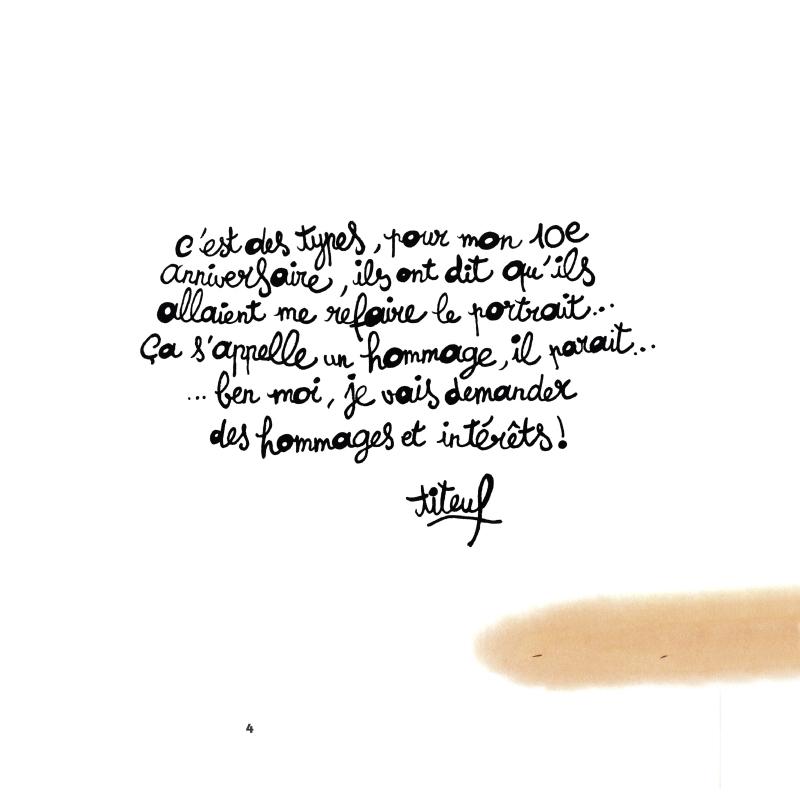 c'est des types, pour mon 10e
anniversaire, ils ont dit qu'ils
allaient me refaire le portrait...
Ça s'appelle un hommage, il parait...
... ben moi, je vais demander
des hommages et intérêts!
titeuf
4